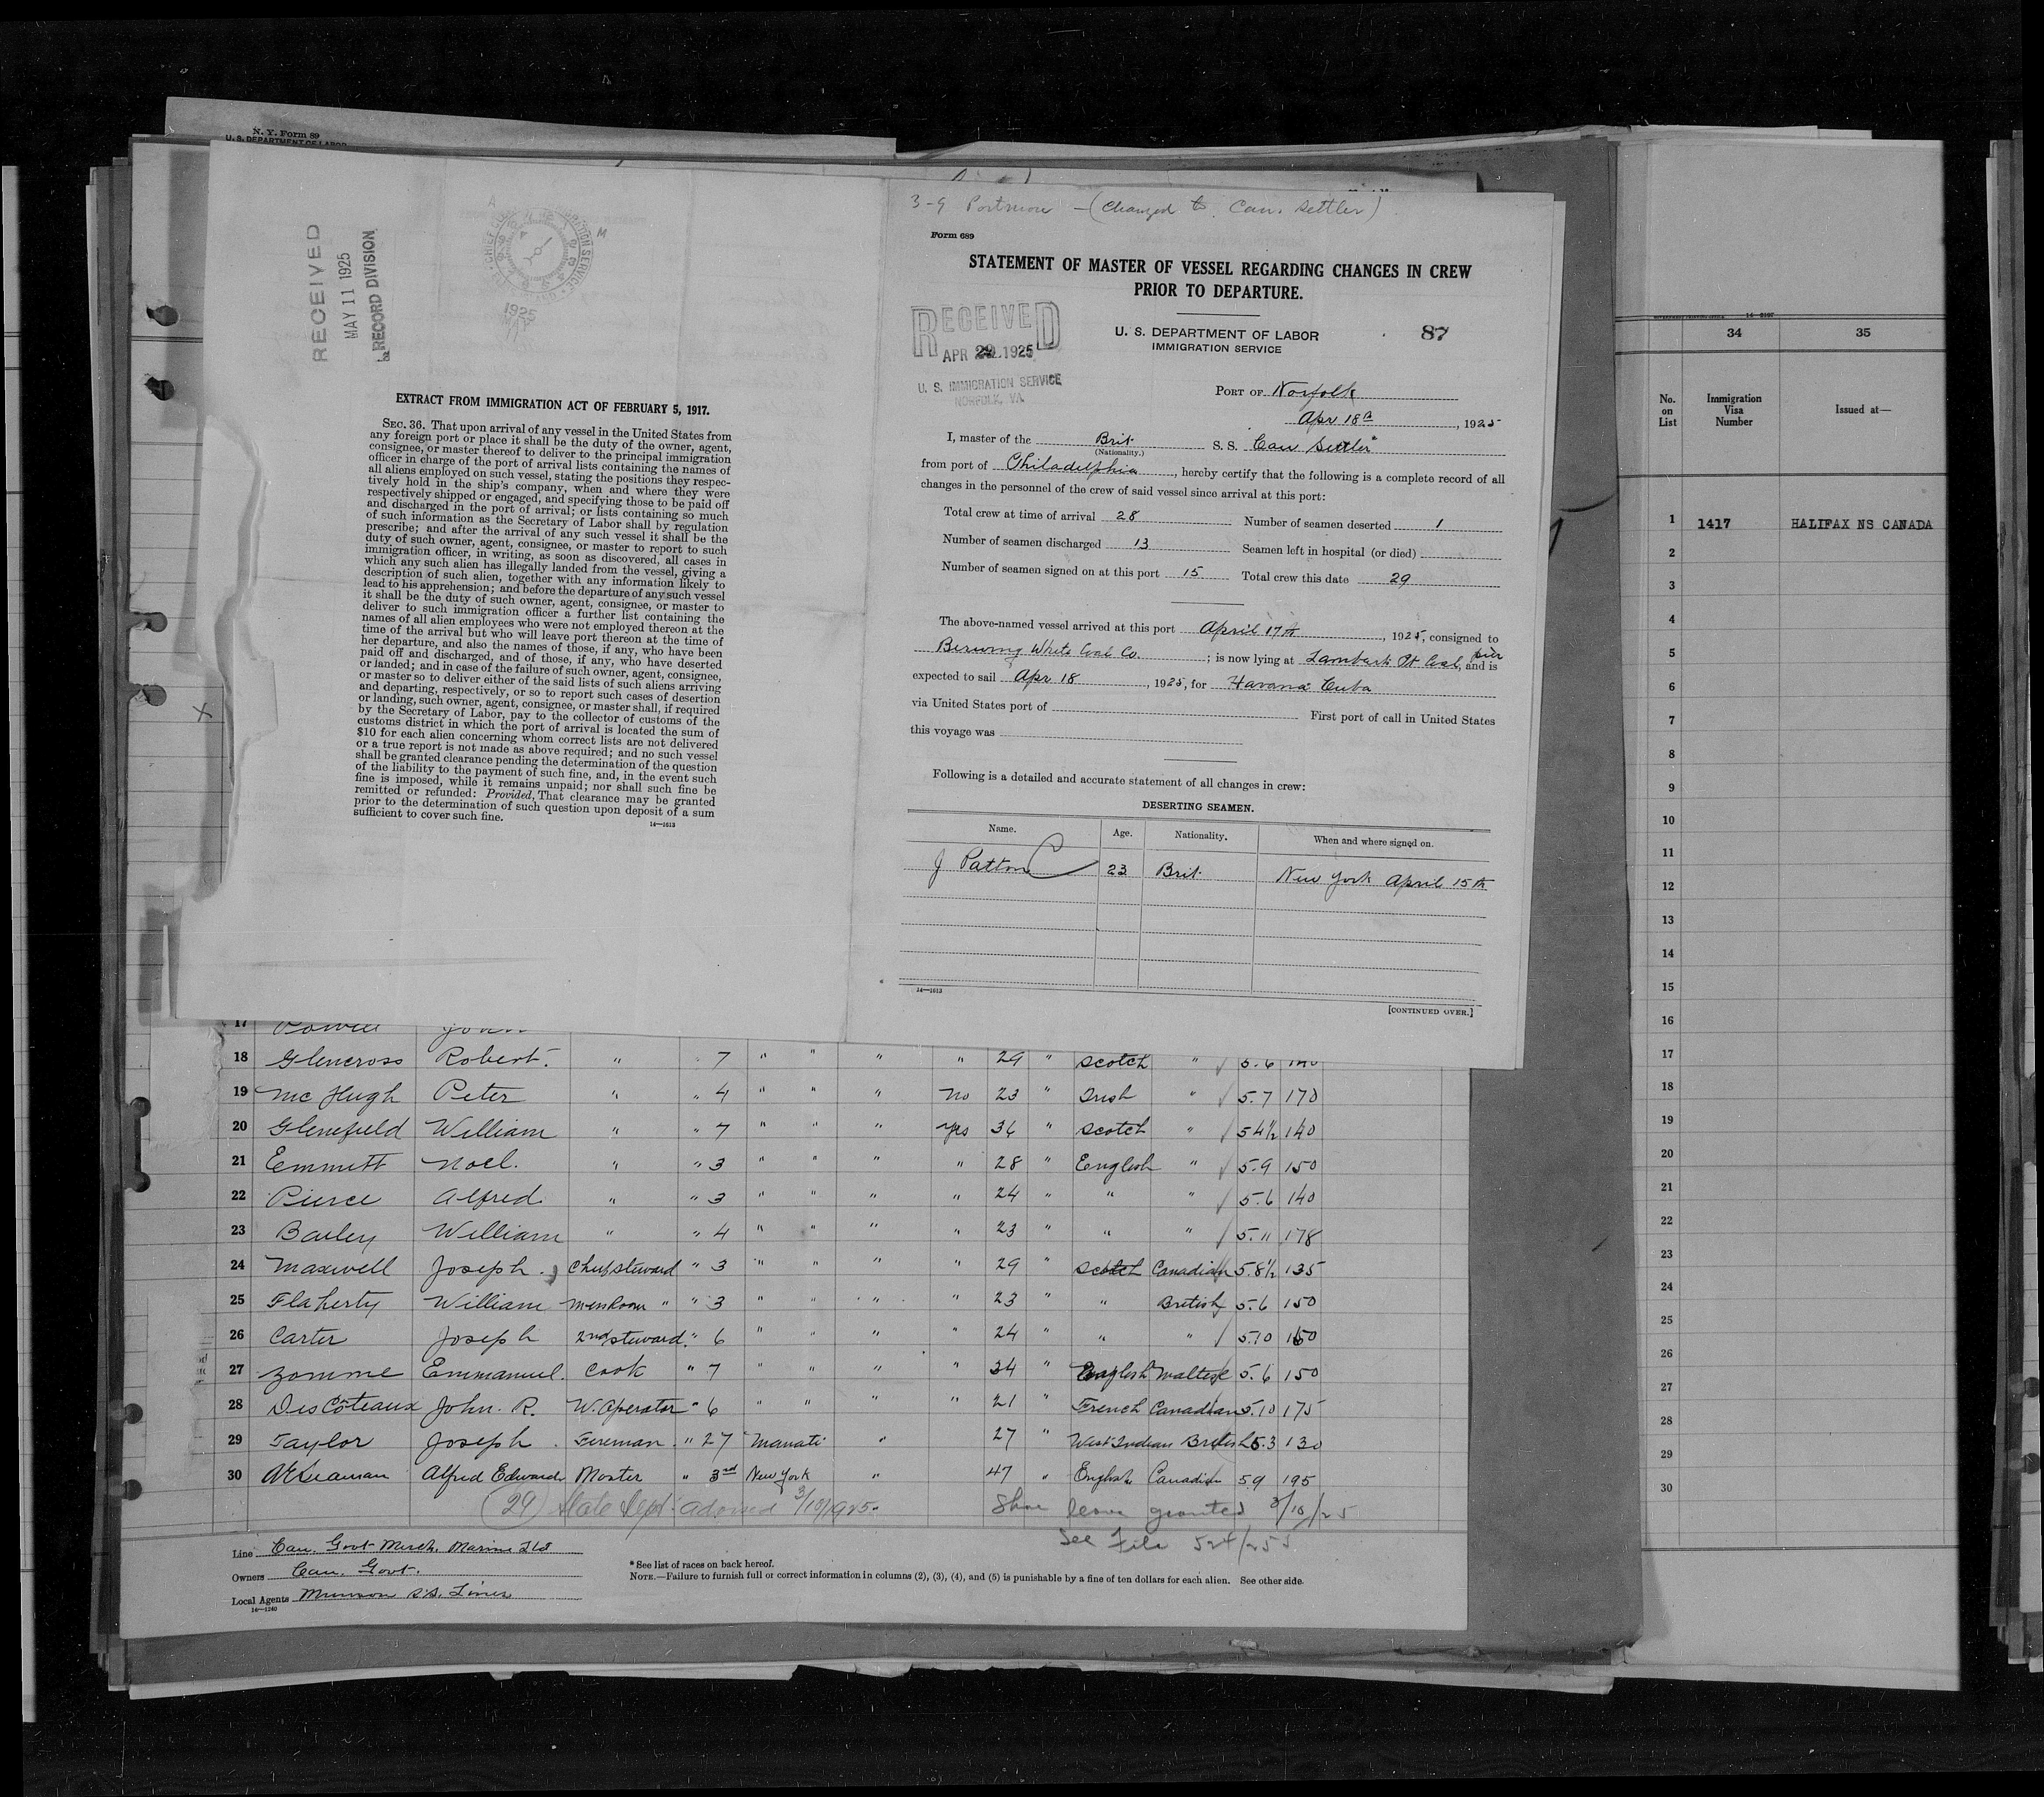 N. Y. Form 89
U. S. DEPARTMENT OF LABOR
RECEIVED
MAY 11 1925
RECORD DIVISION
1925
MAY
EXTRACT FROM IMMIGRATION ACT OF FEBRUARY 5, 1917.
SEC. 36. That upon arrival of any vessel in the United States from
any foreign port or place it shall be the duty of the owner, agent,
consignee, or master thereof to deliver to the principal immigration
officer in charge of the port of arrival lists containing the names of
all aliens employed on such vessel, stating the positions they respec-
tively hold in the ship's company, when and where they were
respectively shipped or engaged, and specifying those to be paid off
and discharged in the port of arrival; or lists containing so much
of such information as the Secretary of Labor shall by regulation
prescribe; and after the arrival of any such vessel it shall be the
duty of such owner, agent, consignee, or master to report to such
immigration officer, in writing, as soon as discovered, all cases in
which any such alien has illegally landed from the vessel, giving a
description of such alien, together with any information likely to
lead to his apprehension; and before the departure of any such vessel
it shall be the duty of such owner, agent, consignee, or master to
deliver to such immigration officer a further list containing the
names of all alien employees who were not employed thereon at the
time of the arrival but who will leave port thereon at the time of
her departure, and also the names of those, if any, who have been
paid off and discharged, and of those, if any, who have deserted
or landed; and in case of the failure of such owner, agent, consignee,
or master so to deliver either of the said lists of such aliens arriving
and departing, respectively, or so to report such cases of desertion
or landing, such owner, agent, consignee, or master shall, if required
by the Secretary of Labor, pay to the collector of customs of the
customs district in which the port of arrival is located the sum of
$10 for each alien concerning whom correct lists are not delivered
or a true report is not made as above required; and no such vessel
shall be granted clearance pending the determination of the question
of the liability to the payment of such fine, and, in the event such
fine is imposed, while it remains unpaid; nor shall such fine be
remitted or refunded: Provided, That clearance may be granted
prior to the determination of such question upon deposit of a sum
sufficient to cover such fine.
14—1613
3-9 (Changed to Can. Settler)
Form 689
STATEMENT OF MASTER OF VESSEL REGARDING CHANGES IN CREW
PRIOR TO DEPARTURE.
RECEIVED
APR 1925
U. S. IMMIGRATION SERVICE
NORFOLK, VA.
U. S. DEPARTMENT OF LABOR
IMMIGRATION SERVICE
87
PORT OF Norfolk
Apr 18th, 1925
I, master of the Brit S. S. Can Settler
(Nationality.)
from port of Philadelphia, hereby certify that the following is a complete record of all
changes in the personnel of the crew of said vessel since arrival at this port:
Total crew at time of arrival 28 Number of seamen deserted 1
Number of seamen discharged 13 Seamen left in hospital (or died)
Number of seamen signed on at this port 15 Total crew this date 29
The above-named vessel arrived at this port April 17th, 1925, consigned to
Berwing White Coal Co.; is now lying at Lamberts Pt Coal pier, and is
expected to sail Apr 18, 1925, for Havana Cuba
via United States port of First port of call in United States
this voyage was
Following is a detailed and accurate statement of all changes in crew:
DESERTING SEAMEN.
Name. Age. Nationality. When and where signed on.
J Patton 23 Brit. New York April 15th
14—1613
[CONTINUED OVER.]
17 Powell John
18 Glencross Robert. " " 7 " " " " 29 " Scotch " 5.6 140
19 McHugh Peter " " 4 " " " No 23 " Irish " 5.7 170
20 Glenefield William " " 7 " " " yes 36 " Scotch " 5 4½ 140
21 Emmett Noel. " " 3 " " " " 28 " English " 5.9 150
22 Pierce Alfred " " 3 " " " " 24 " " " 5.6 140
23 Bailey William " " 4 " " " " 23 " " " 5.11 178
24 Maxwell Joseph Chief steward " 3 " " " " 29 " Scotch Canadian 5.8½ 135
25 Flaherty William Messroom " " 3 " " " " 23 " " British 5.6 150
26 Carter Joseph 2nd steward " 6 " " " " 24 " " " 5.10 150
27 Zomme Emmanuel. Cook " 7 " " " " 34 " English Maltese 5.6 150
28 DesCôteaux John. R. W. Operator " 6 " " " " 21 " French Canadian 5.10 175
29 Taylor Joseph Fireman " 27 Manati " 27 " West Indian British 5.3 130
30 Alfred Edward Master " 3rd New York " 47 " English Canadian 5.9 195
(29) State Dept. advised 3/10/1925. Shore leave granted 3/10/25
See File 524/255
Line Can. Govt Merch. Marine Ltd
Owners Can. Govt.
Local Agents Munson S.S. Lines
14—1240
* See list of races on back hereof.
NOTE.—Failure to furnish full or correct information in columns (2), (3), (4), and (5) is punishable by a fine of ten dollars for each alien. See other side.
34 35
No. on List Immigration Visa Number Issued at—
1 1417 HALIFAX NS CANADA
2
3
4
5
6
7
8
9
10
11
12
13
14
15
16
17
18
19
20
21
22
23
24
25
26
27
28
29
30